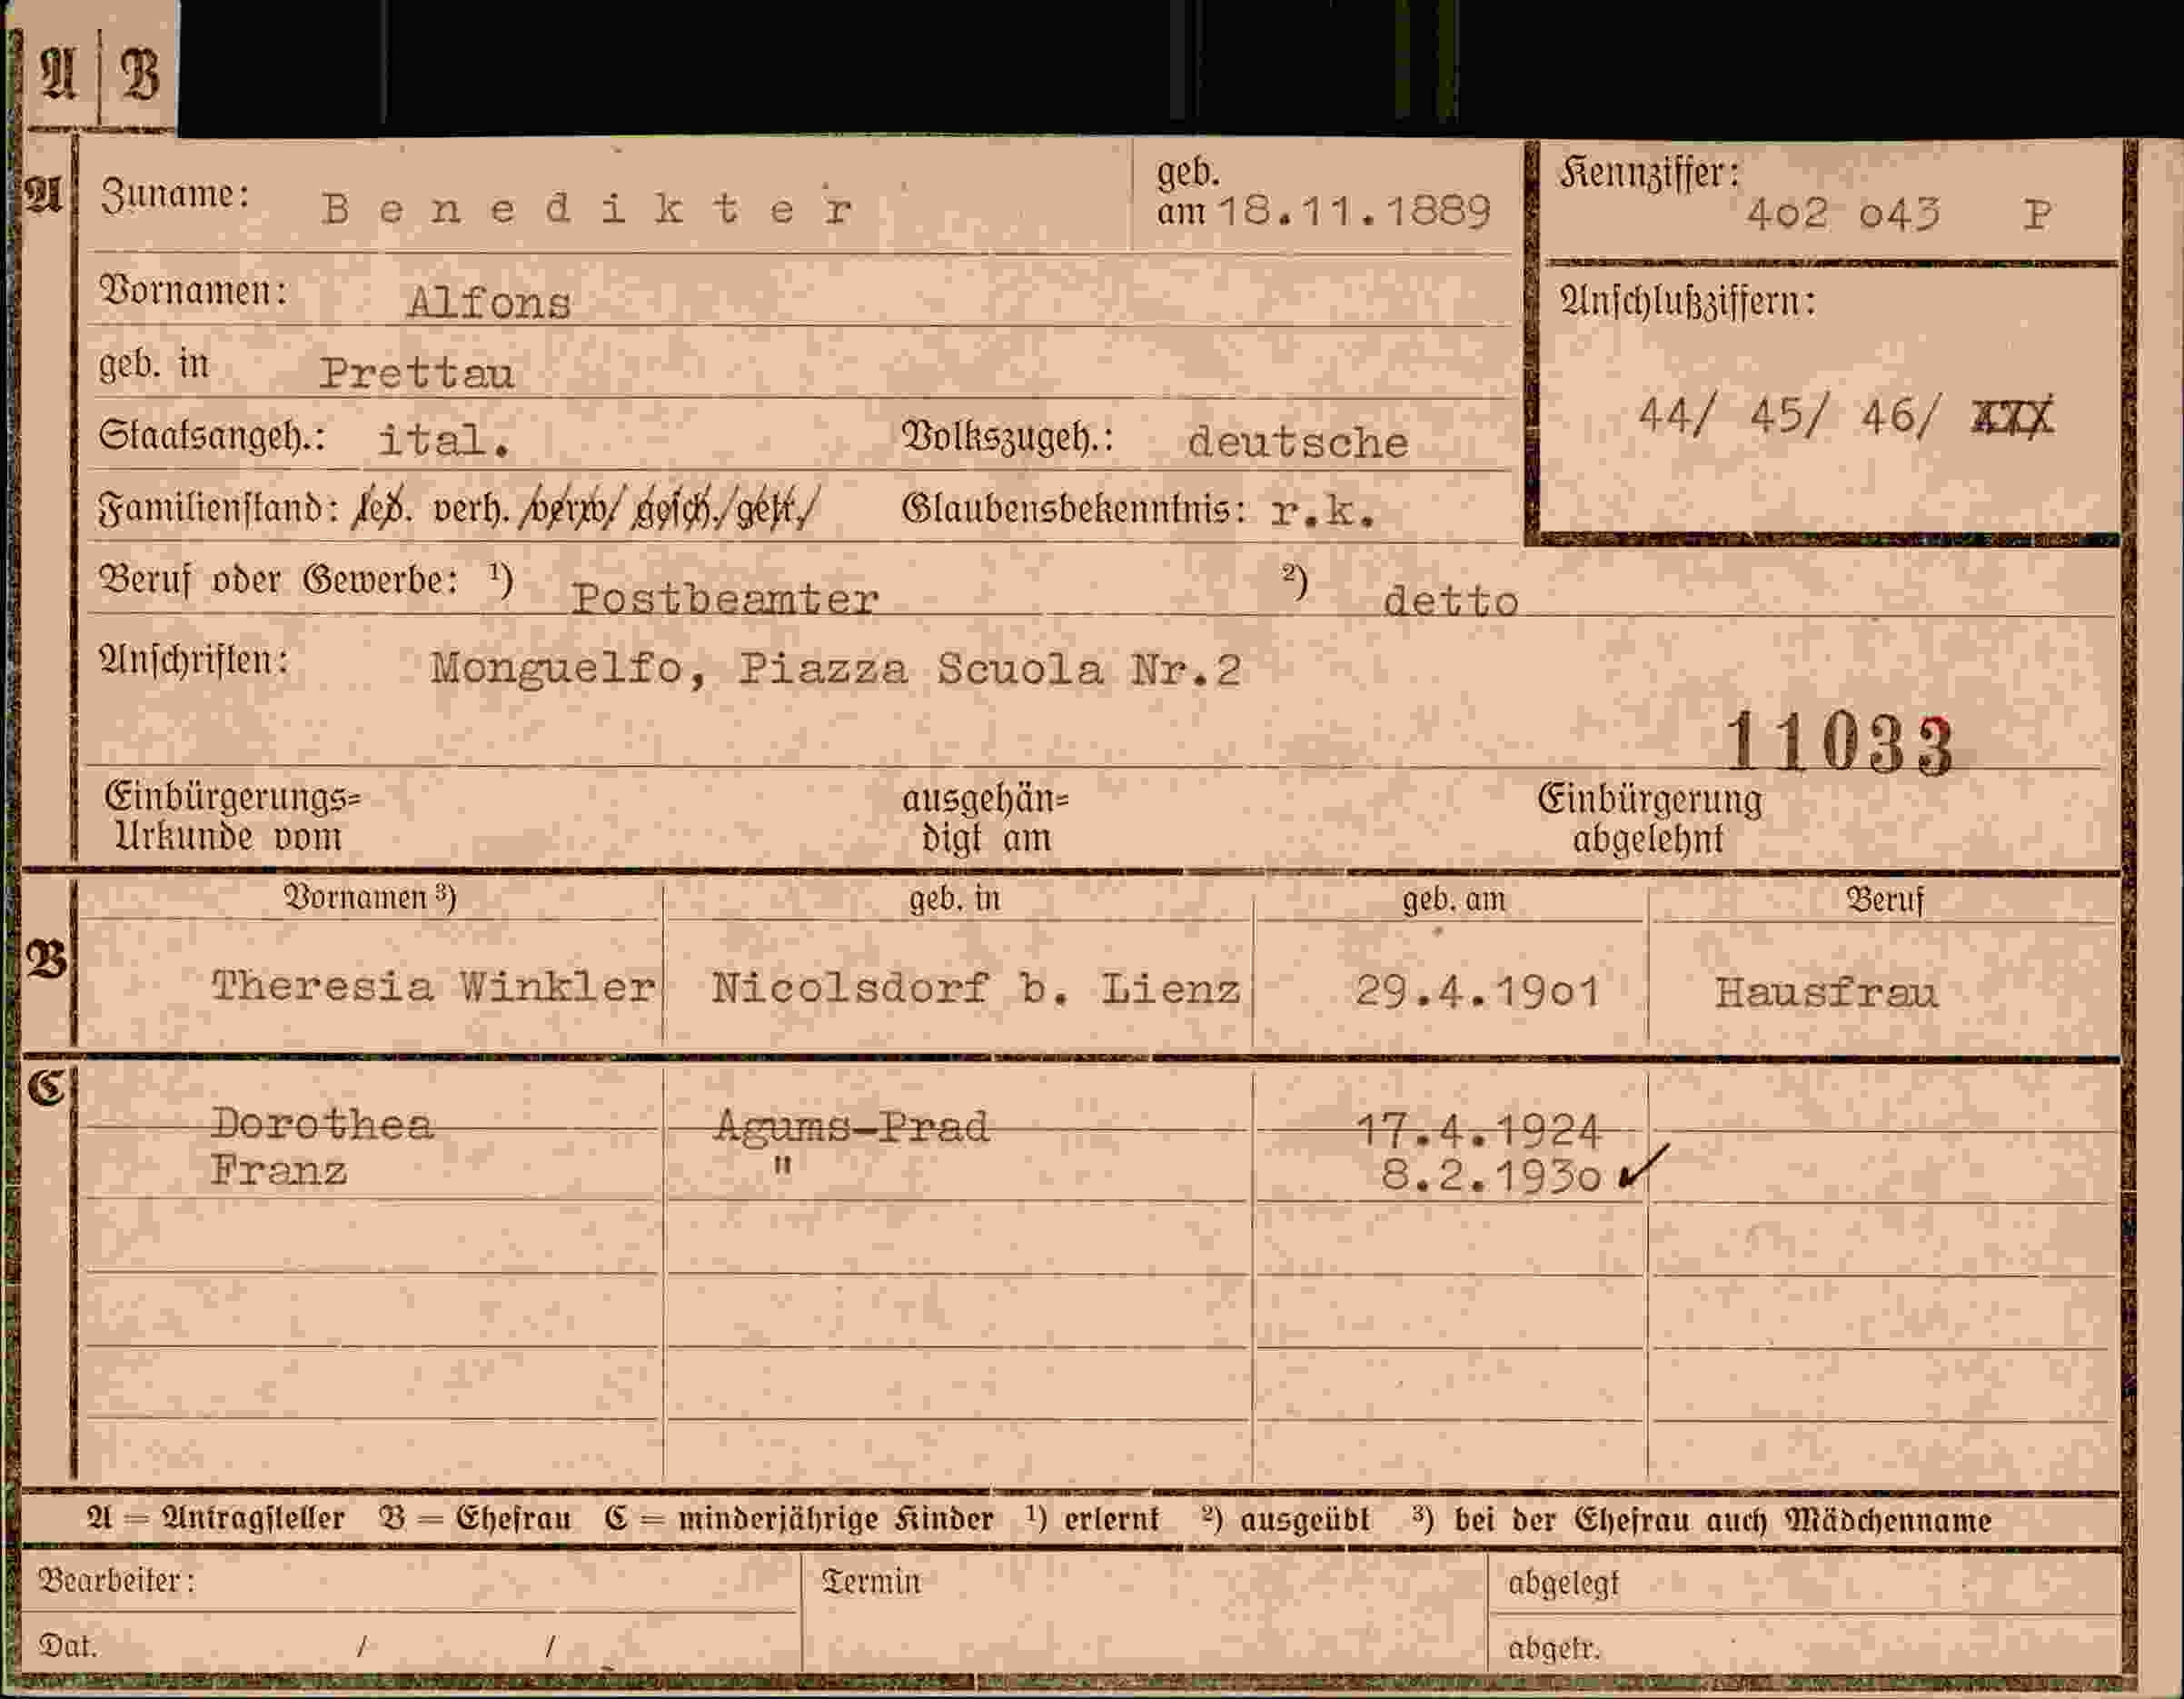 A B
A Zuname: Benedikter geb. am 18.11.1889 Kennziffer: 4o2 o43 P
Vornamen: Alfons Anschlußziffern:
geb. in Prettau
44/ 45/ 46/
Staatsangeh.: ital. Volkszugeh.: deutsche
Familienstand: led. verh. /verw/ gesch./getr./ Glaubensbekenntnis: r.k.
Beruf oder Gewerbe: ¹) Postbeamter ²) detto
Anschriften: Monguelfo, Piazza Scuola Nr.2
11033
Einbürgerungs= ausgehän= Einbürgerung
Urkunde vom digt am abgelehnt
Vornamen ³) geb. in geb. am Beruf
B Theresia Winkler Nicolsdorf b. Lienz 29.4.19o1 Hausfrau
C
Dorothea Agums-Prad 17.4.1924
Franz " 8.2.193o ✓
A = Antragsteller B = Ehefrau C = minderjährige Kinder ¹) erlernt ²) ausgeübt ³) bei der Ehefrau auch Mädchenname
Bearbeiter: Termin abgelegt
Dat. / / abgetr.